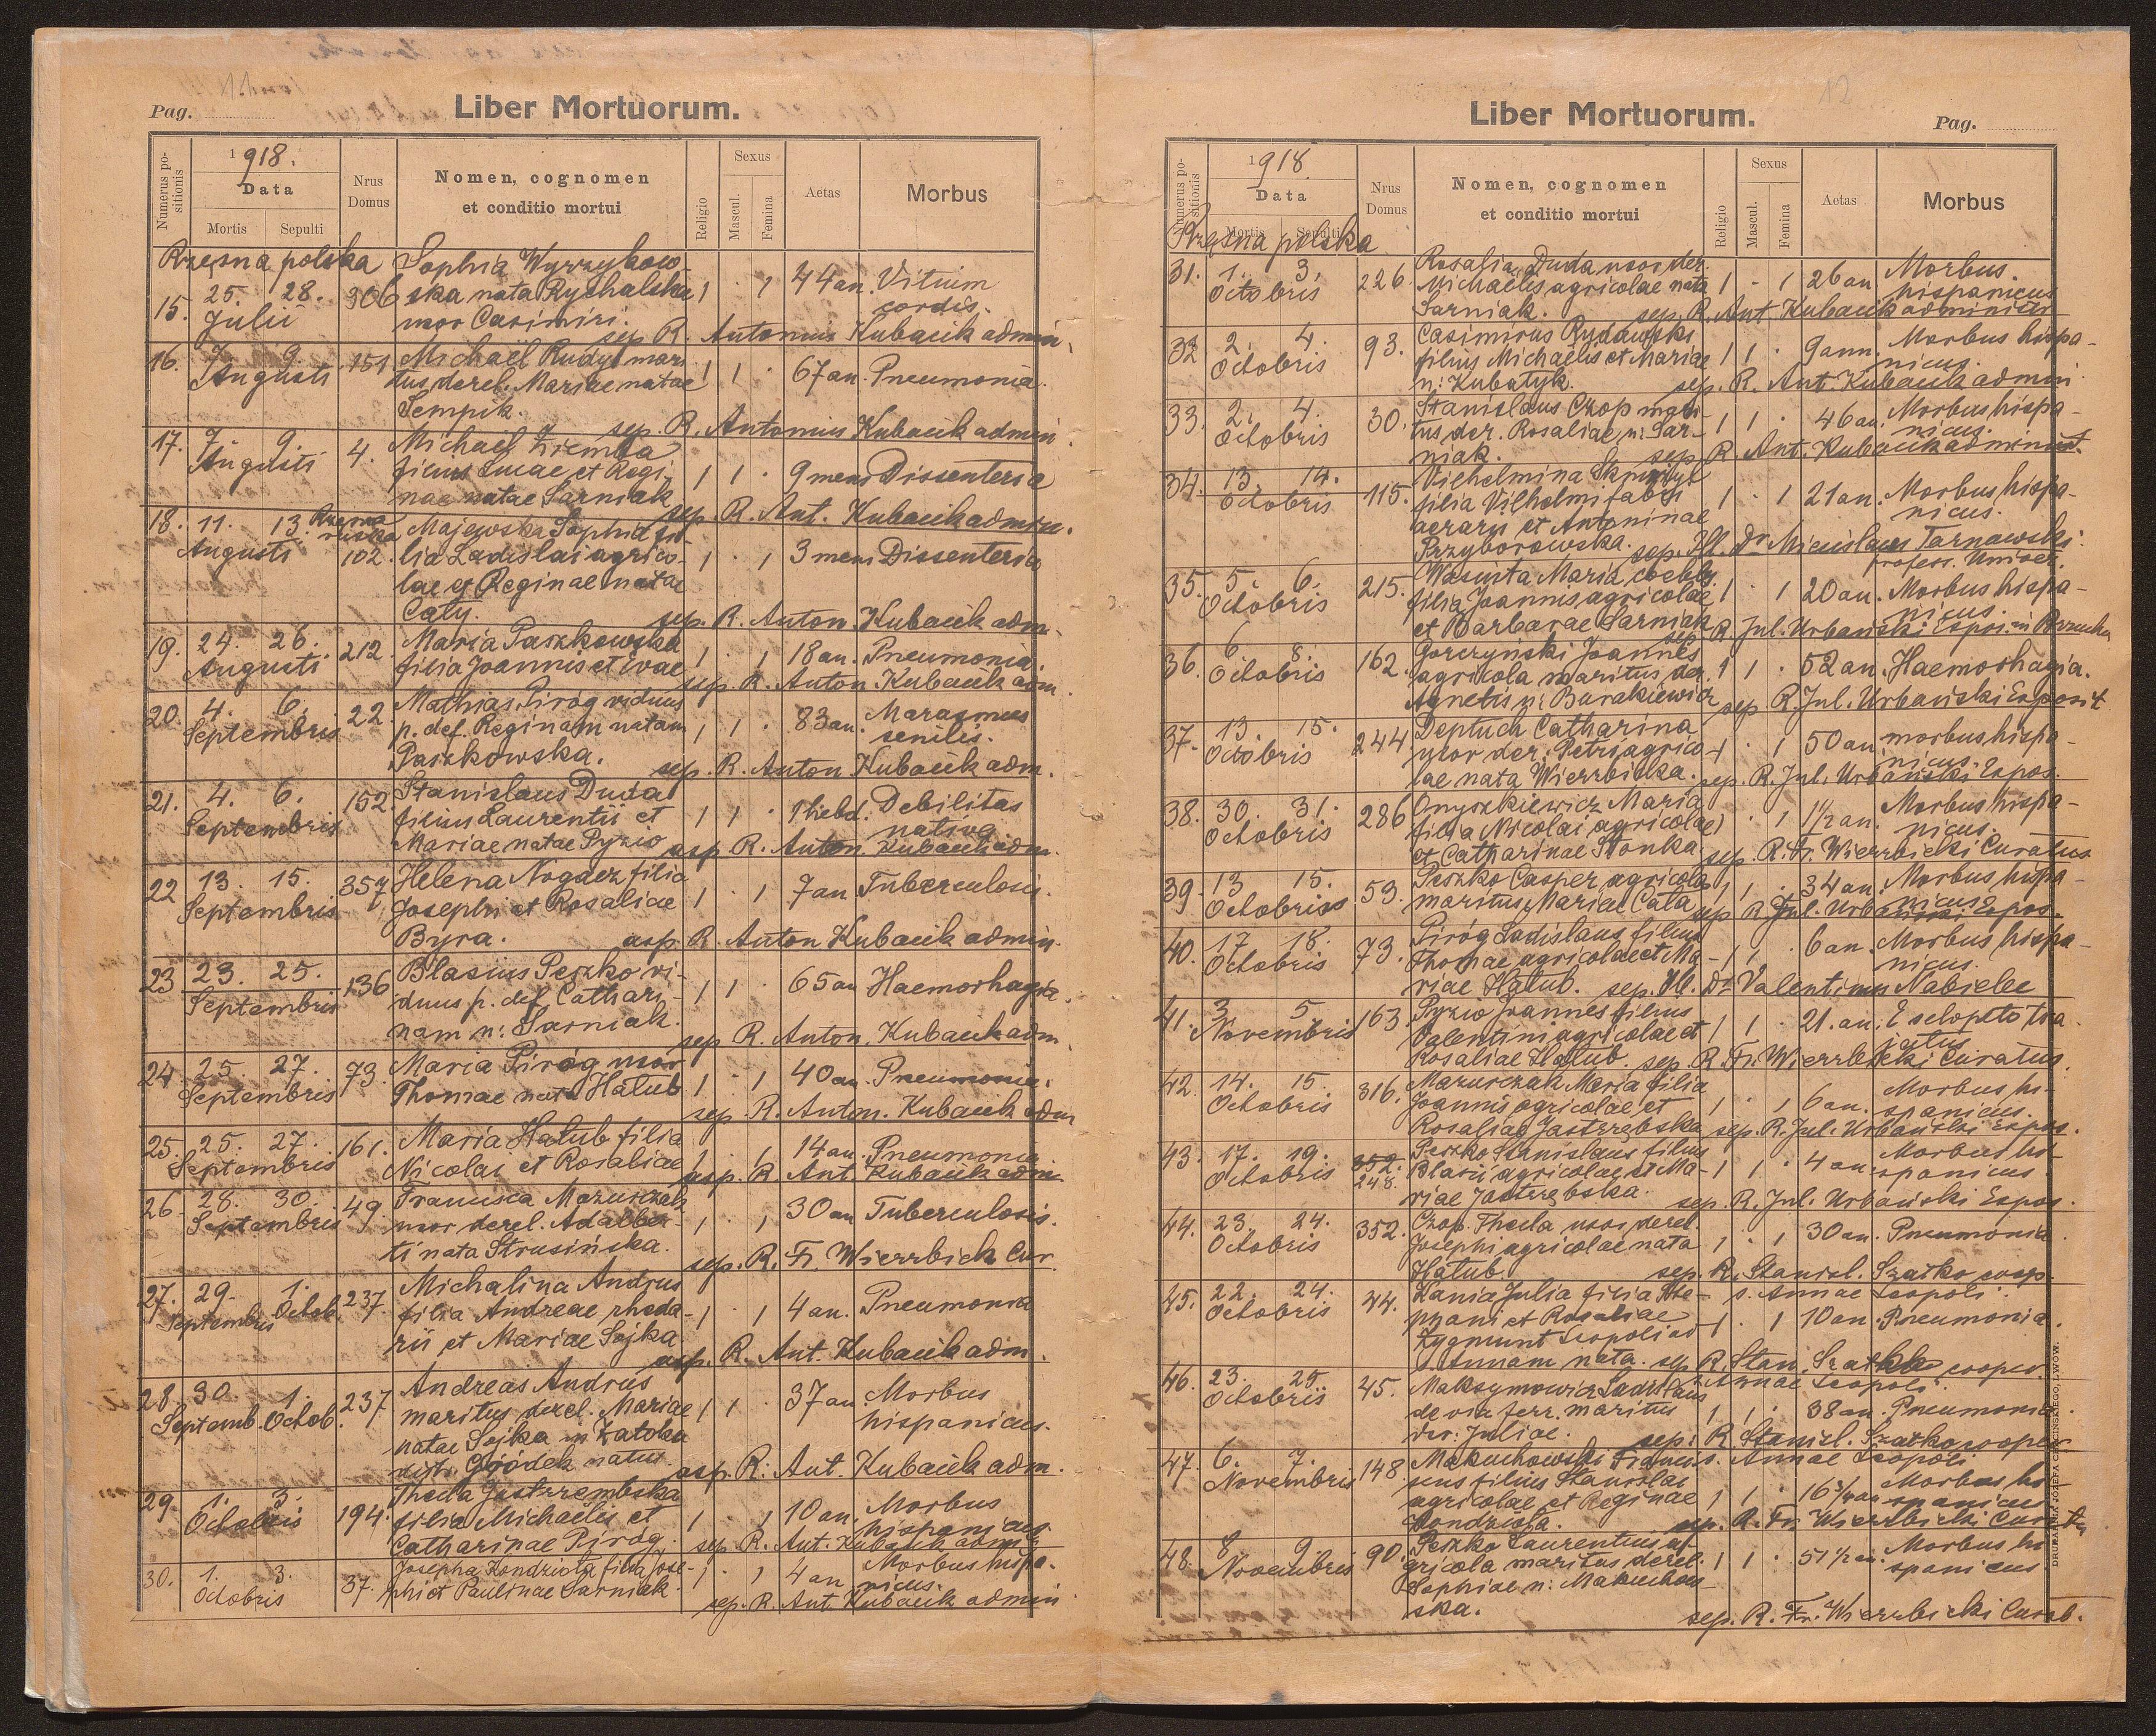 Pag.
Liber Mortuorum.
Numerus positionis
1918.
Data
Mortis Sepulti
Nrus Domus
Nomen, cognomen
et conditio mortui
Religio
Sexus
Mascul. Femina
Aetas
Morbus
Rzęsna polska Sophia Wyrzykow
15. 25. 28. 306 ska nata Rychalska 1 · 1 44 an. Vitium
Julii uxor Casimiri. cordis.
sep. R. Antonius Kubacik admin.
16. 7. 9. 151 Michaël Rudyl mari
Augusti tus derel. Mariae natae 1 1 · 67 an. Pneumonia.
Sempik.
sep. R. Antonius Kubacik admin.
17. 7. 9. 4. Michaël Ziemba
Augusti filius Lucae et Regi 1 1 · 9 mens Dissenteria
nae natae Sarniak
sep. R. Ant. Kubacik admin.
18. 11. 13. Rzęsna ruska Majewska Sophia fi
Augusti 102. lia Ladislai agrico- 1 · 1 3 mens Dissenteria
lae et Reginae natae
Caty.
sep. R. Anton. Kubacik adm.
19. 24. 26. 212. Maria Paszkowska
Augusti filia Joannis et Evae 1 · 1 18 an. Pneumonia.
sep. R. Anton. Kubacik adm.
20. 4. 6. 22. Mathias Piróg viduus
Septembris p. def. Reginam natam 1 1 · 83 an. Marasmus
Paszkowska. senilis.
sep. R. Anton Kubacik adm.
21. 4. 6. 152 Stanislaus Duda
Septembris filius Laurentii et 1 1 · 1 hebd. Debilitas
Mariae natae Pyzio nativa
sep R. Anton. Kubacik adm.
22 13. 15. 357 Helena Nogacz filia
Septembris Josephi et Rosaliae 1 · 1 7 an Tuberculosis.
Byra.
sep. R. Anton Kubacik admin.
23. 23. 25. 136 Blasius Peszko vi-
Septembris duus p. def. Cathari- 1 1 · 65 an Haemorhagia.
nam n: Sarniak.
sep R. Anton. Kubacik adm.
24 25. 27. 73. Maria Piróg uxor
Septembris Thomae nata Hałub 1 · 1 40 an. Pneumonia.
sep. R. Anton. Kubacik adm
25. 25. 27. 161. Maria Hałub filia
Septembris Nicolai et Rosaliae 1 · 1 14 an. Pneumonia
sep. R. Ant. Kubacik adm.
26. 28. 30. 49. Francisca Mazurczak
Septembris uxor derel. Adalber- 1 · 1 30 an Tuberculosis.
ti nata Strusińska.
sep. R. Fr. Wierzbicki Cur.
27. 29. 1. 237. Michalina Andrus
Septembris Octob. filia Andreae rheda- 1 · 1 4 an. Pneumonia
rii et Mariae Sojka
sep. R. Ant. Kubacik adm.
28. 30. 1. 237 Andreas Andrus
Septemb. Octob. maritus derel. Mariae 1 1 · 37 an. Morbus
natae Sojka in Zatoka hispanicus.
distr. Gródek natus
sep. R. Ant. Kubacik adm.
29. 1. 3. 194. Thecla Jastrzembska
Octobris filia Michaëlis et 1 · 1 10 an. Morbus
Catharinae Piróg. hispanicus.
sep. R. Ant. Kubacik adm.
30. 1. 3. 37. Josepha Kondziola filia Jose-
Octobris phi et Paulinae Sarniak. 1 · 1 4 an Morbus hispa-
nicus.
sep. R. Ant. Kubacik admin
12
Liber Mortuorum.
Pag.
Numerus positionis
1918.
Data
Mortis Sepulti
Nrus Domus
Nomen, cognomen
et conditio mortui
Religio
Sexus
Mascul. Femina
Aetas
Morbus
Rzęsna polska
31. 1. 3. 226. Rosalia Duda uxor der.
Octobris Michaelis agricolae nata 1 · 1 26 an. Morbus
Sarniak. hispanicus
sep. R. Ant. Kubacik administr.
32 2. 4. 93. Casimirus Rydawski
Octobris filius Michaelis et Mariae 1 1 · 9 ann. Morbus hispa-
n: Kubatyk. nicus.
sep. R. Ant. Kubacik admin
33. 2. 4. 30. Stanislaus Czop mari-
Octobris tus der. Rosaliae n: Sar- 1 1 · 46 an. Morbus hispa-
niak. nicus.
sep. R. Ant. Kubacik administ.
34. 13. 14. 115. Vilhelmina
Octobris filia Vilhelmi fabri 1 · 1 21 an. Morbus hispa-
aerarii et Antoninae nicus.
Przyborowska. sep. Ill. Dr Mieceslaus Tarnawski
profess. Univer.
35. 5. 6. 215. Maria coelebs.
Octobris filia Joannis agricolae 1 · 1 20 an. Morbus hispa-
et Barbarae Sarniak nicus.
sep. R. Jul. Urbański Expos. in Brzucho
36. 6. 8. 162. Gorczyński Joannes
Octobris agricola maritus der. 1 1 · 52 an. Haemorhagia.
Agnetis n: Burakiewicz
sep R. Jul. Urbański Exposit
37. 13. 15. 244 Deptuch Catharina
Octobris uxor der. Petri agrico- 1 · 1 50 an. morbus hispa-
lae nata Wierzbicka. nicus.
sep. R. Jul. Urbański Expos.
38. 30. 31. 286 Onyszkiewicz Maria
Octobris filia Nicolai agricolae 1 · 1 1 1/2 an. Morbus hispa-
et Catharinae Stonka. nicus.
sep. R. Fr. Wierzbicki Curatus
39. 13 15. 53. Peszko Casper agricola
Octobris maritus Mariae Cata 1 1 · 34 an. Morbus hispa-
nicus
sep R. Jul. Urbański Expos.
40. 17 18. 73. Piróg Ladislaus filius
Octobris Thomae agricolae et Ma- 1 1 · 6 an. Morbus hispa-
riae Hałub. nicus.
sep. Ill. Dr Valentinus Nabielec
41. 3. 5. 163 Pyzio Joannes filius
Novembris Valentini agricolae et 1 1 · 21. an. E selopeto tra
Rosaliae Hałub. jectus
sep. R Fr. Wierzbicki Curatus.
42. 14. 15. 316. Mazurczak Maria filia
Octobris Joannis agricolae et 1 · 1 6 an. Morbus hi-
Rosaliae Jastrzębska spanicus.
sep. R. Jul. Urbański Expos.
43. 17. 19. 352. Peszko Stanislaus filius
Octobris 248. Blasii agricolae et Ma- 1 1 · 4 an. Morbus hi-
riae Jastrzębska. spanicus
sep. R. Jul. Urbański Expos.
44. 23. 24. 352. Czop Thecla uxor derel.
Octobris Josephi agricolae nata 1 · 1 30 an. Pneumonia.
Hałub.
sep. R. Stanisl. Szatko coop.
45. 22. 24. 44. Kania Julia filia Ste- s. Annae Leopoli.
Octobris phani et Rosaliae
Zygmunt Leopoli ad 1 · 1 10 an. Pneumonia.
s. Annam nata. sep. R. Stan. Szatko cooper.
46. 23. 25. 45. Maksymowicz Ladislaus s. Annae Leopoli.
Octobris de via ferr. maritus 1 1 · 38 an. Pneumonia.
der. Juliae.
sep. R. Stanisl. Szatko cooper
47. 6. 7. 148. Makuchowski Francis s. Annae Leopoli
Novembris cus filius Stanislai
agricolae et Reginae 1 1 · 16 3/4 an Morbus hi-
Kondziola. spanicus
sep. R. Fr. Wierzbicki Curatu
48. 8. 9. 90. Peszko Laurentius a-
Novembris gricola maritus derel. 1 1 · 51 1/2 an. Morbus hi
Sophiae n: Makuchow- spanicus
ska.
sep. R. Fr. Wierzbicki Curat.